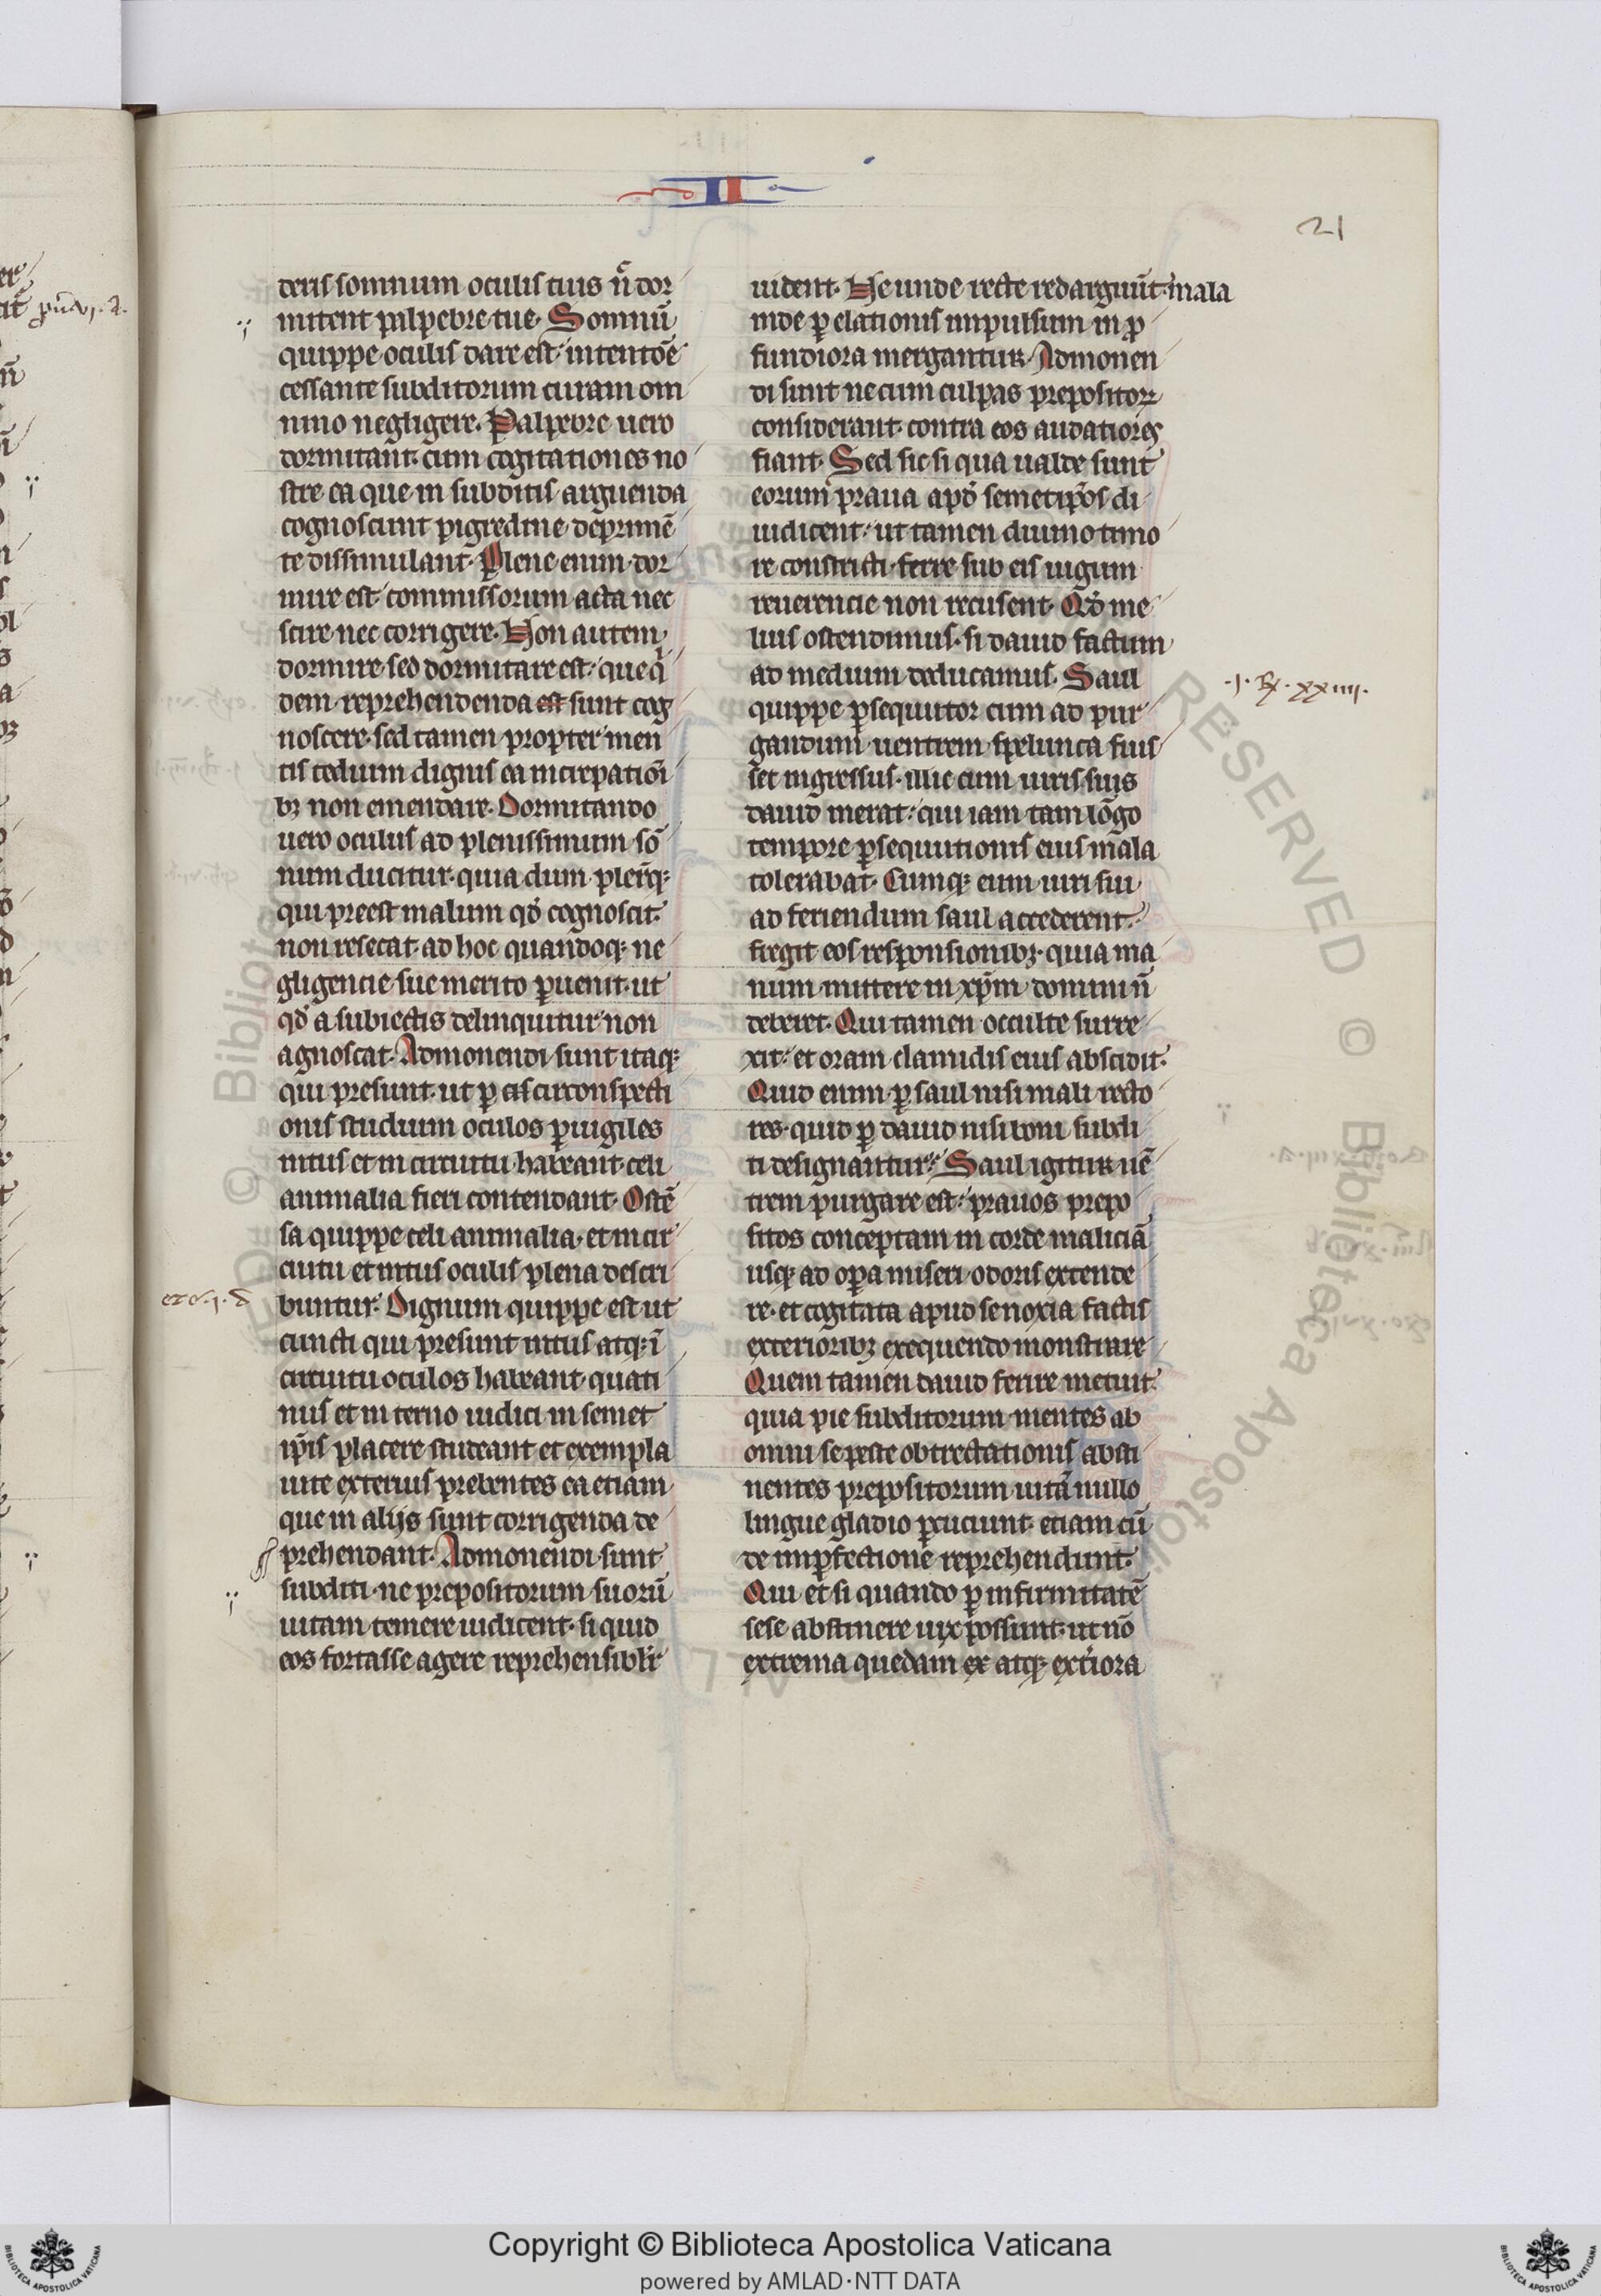 II
21
deris somnum oculis tuis n̄ dor
mitent palpebre tue. Somnū
quippe oculis dare est intentōe
cessante subditorum curam om
nino negligere. Palpebre uero
dormitant. cum cogitationes no
stre ea que in subditis arguenda
cognoscunt pigredine deprimē
te dissimulant. Plene enim dor
mire est commissorum acta nec
scire nec corrigere. Non autem
dormire sed dormitare est. que qͥ
dem reprehendenda est sunt cog
noscere. sed tamen propter men
tis tedium dignis ea increpatiōi
bꝫ non emendare. Dormitando
uero oculus ad plenissimum sō
num ducitur. quia dum plerūqꝫ
qui preest malum qd̄ cognoscit.
non resecat. ad hoc quandoqꝫ ne
gligencie sue merito ꝑuenit. ut
qd̄ a subiectis delinquitur non
agnoscat. Admonendi sunt itaqꝫ
qui presunt. ut ꝑ cis circonspecti
onis studium oculos ꝑuigiles
intus et in circuitu habeant. celi
animalia fieri contendant. Ostē
sa quippe celi animalia. et in cir
cuitu et intus oculis plena descri
buntur. Dignum quippe est ut
cuncti qui presunt intus atqꝫ ī
circuitu oculos habeant. quati
nus et in terno iudici in semet
ip̄is placere studeant et exempla
uite exterius prebentes ea etiam
que in alijs sunt corrigenda de
prehendant. Admonendi sunt
subditi. ne prepositorum suorū
uitam temere iudicent. si quid
eos fortasse agere reprehensibilr̄
ezec. i. d
uident. Ne unde recte redarguūt mala
inde ꝑ elationis impulsum in ꝓ
fundiora mergantur. Admonen
di sunt ne cum culpas prepositoꝝ
considerant. contra eos audatiores
fiant. Sed sic si qua ualde sunt
eorum praua apd̄ semetip̄os di
iudicent. ut tamen diuino timo
re constricti. ferre sub eis iugum
reuerencie non recusent. Qd̄ me
lius ostendimus. si dauid factum
ad medium deducamus. Saul
quippe ꝑsequutor cum ad pur
gandum uentrem spelunca fuis
set ingressus. illic cum uiris suis
dauid inerat. qui iam tam lōgo
tempore ꝑsequutionis eius mala
tolerabat. Cumqꝫ eum uiri sui
ad feriendum saul accederent.
fregit eos responsionibꝫ. quia ma
num mittere in xp̄m domini n̄
deberet. Qui tamen occulte surre
xit. et oram clamidis eius abscidit.
Quid enim ꝑ saul nisi mali recto
res. quid ꝑ dauid nisi boni subdi
ti designantur. Saul igitur uē
trem purgare est. prauos prepo
sitos conceptam in corde maliciā
usqꝫ ad opera miseri odoris extende
re. et cogitata apud se noxia factis
exterioribꝫ exequendo monstrare
Quem tamen dauid ferire metuit.
quia pie subditorum mentes ab
omni se peste obtrectationis absti
nentes prepositorum uitā nullo
lingue gladio ꝑcuciunt. etiam cū
de imꝑfectione reprehendunt.
Qui et si quando ꝑ infirmitatē
sese abstinere uix possunt. ut nō
extrema quedam ex atqꝫ exteriora
.i. R. xxiiii.
Copyright © Biblioteca Apostolica Vaticana
powered by AMLAD·NTT DATA